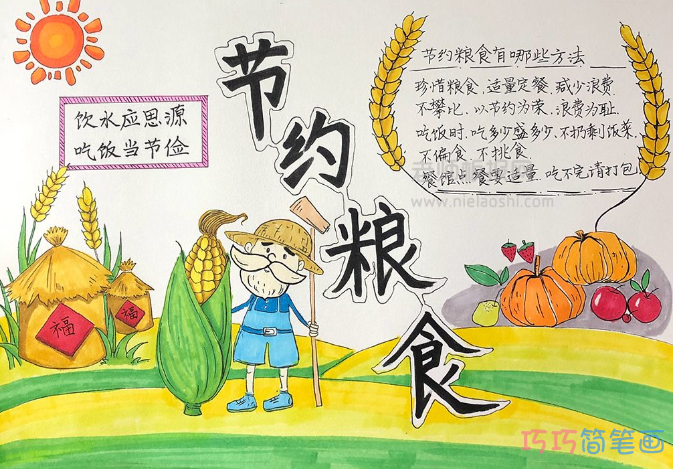 饮水应思源
吃饭当节俭
节约粮食
节约粮食有哪些方法
珍惜粮食.适量定餐.减少浪费
不攀比.以节约为荣.浪费为耻
吃饭时.吃多少盛多少.不扔剩饭菜.
不偏食.不挑食.
餐馆点餐要适量.吃不完请打包
www.nielaoshi.com
福
福
巧巧简笔画